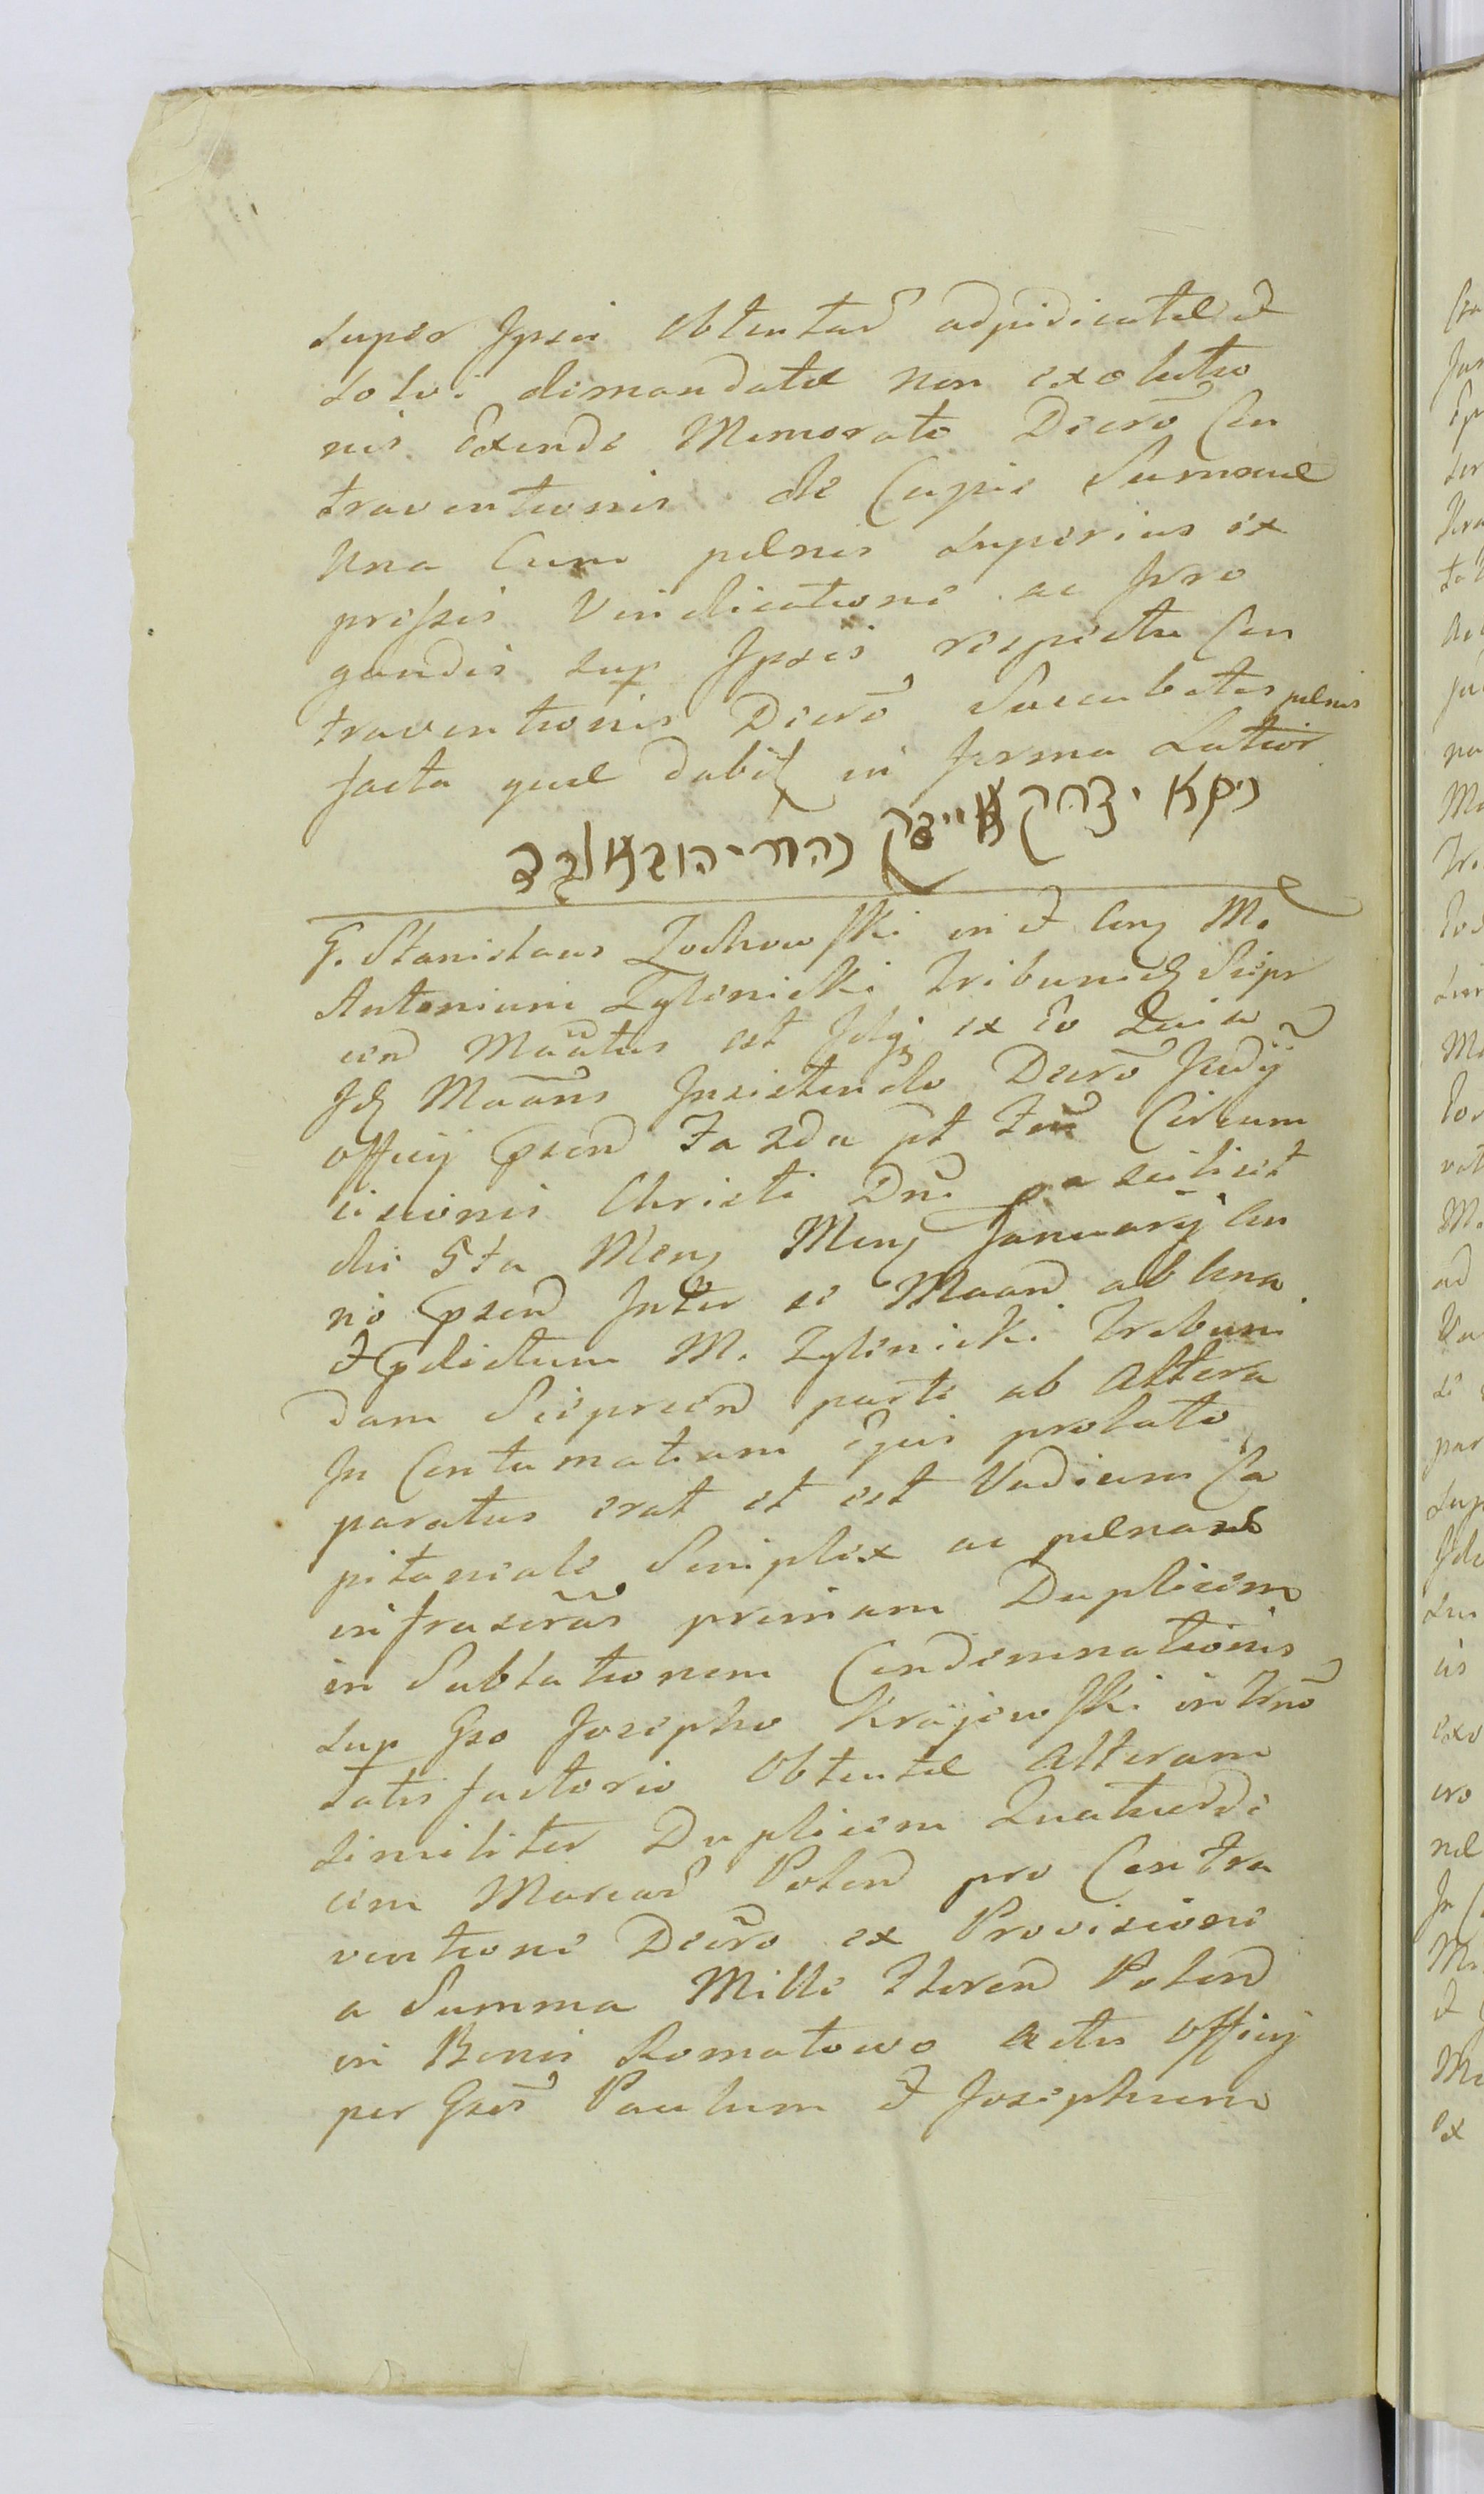 super Ipsis obtentae adjudicatae et
solvi demandatae non exolutio
nis Exinde Memorato Decrō Con
traventionis de Cujus Summae
Una Cum poenis superius ex
pressis Vindicatione ac Irro
gandis sup Ipsis respectu Con
traventionis Decrō Succubitis poenis
facta quae dabit in forma Latior
G. Stanislaus Zochowski in et Con M.
Antonium Zglenicki Tribunid Sierp
cen Maātus est Idq ex Eo Quia
Id Maāns Insistendo Decrō Judij
officij psen Fa 2da pt Fes Circum
cisionis Christi Dni pa scilicet
die 5ta Mens Mens January An
ni psen Inter se Maan ab Una
et pdictum M. Zglenicki Tribuni
dam Sierpcen parte ab Altera
In Contumatiam Ejus prolato
paratus erat et est Vadium Ca
pitaneale Simplex ac poenas
infrascrās primam Duplicem
in Sublationem Condemnationis
sup Gso Josepho Krajewski in Trno
satisfactorio Obtentae Alteram
similiter Duplicem Quatuorde
cim Marcas Polon pro Contra
ventione Decrō ex Provisione
a Summa Mille Floren Polon
in Bonis Romatowo Actis Officij
per Gses Paulum et Josephum